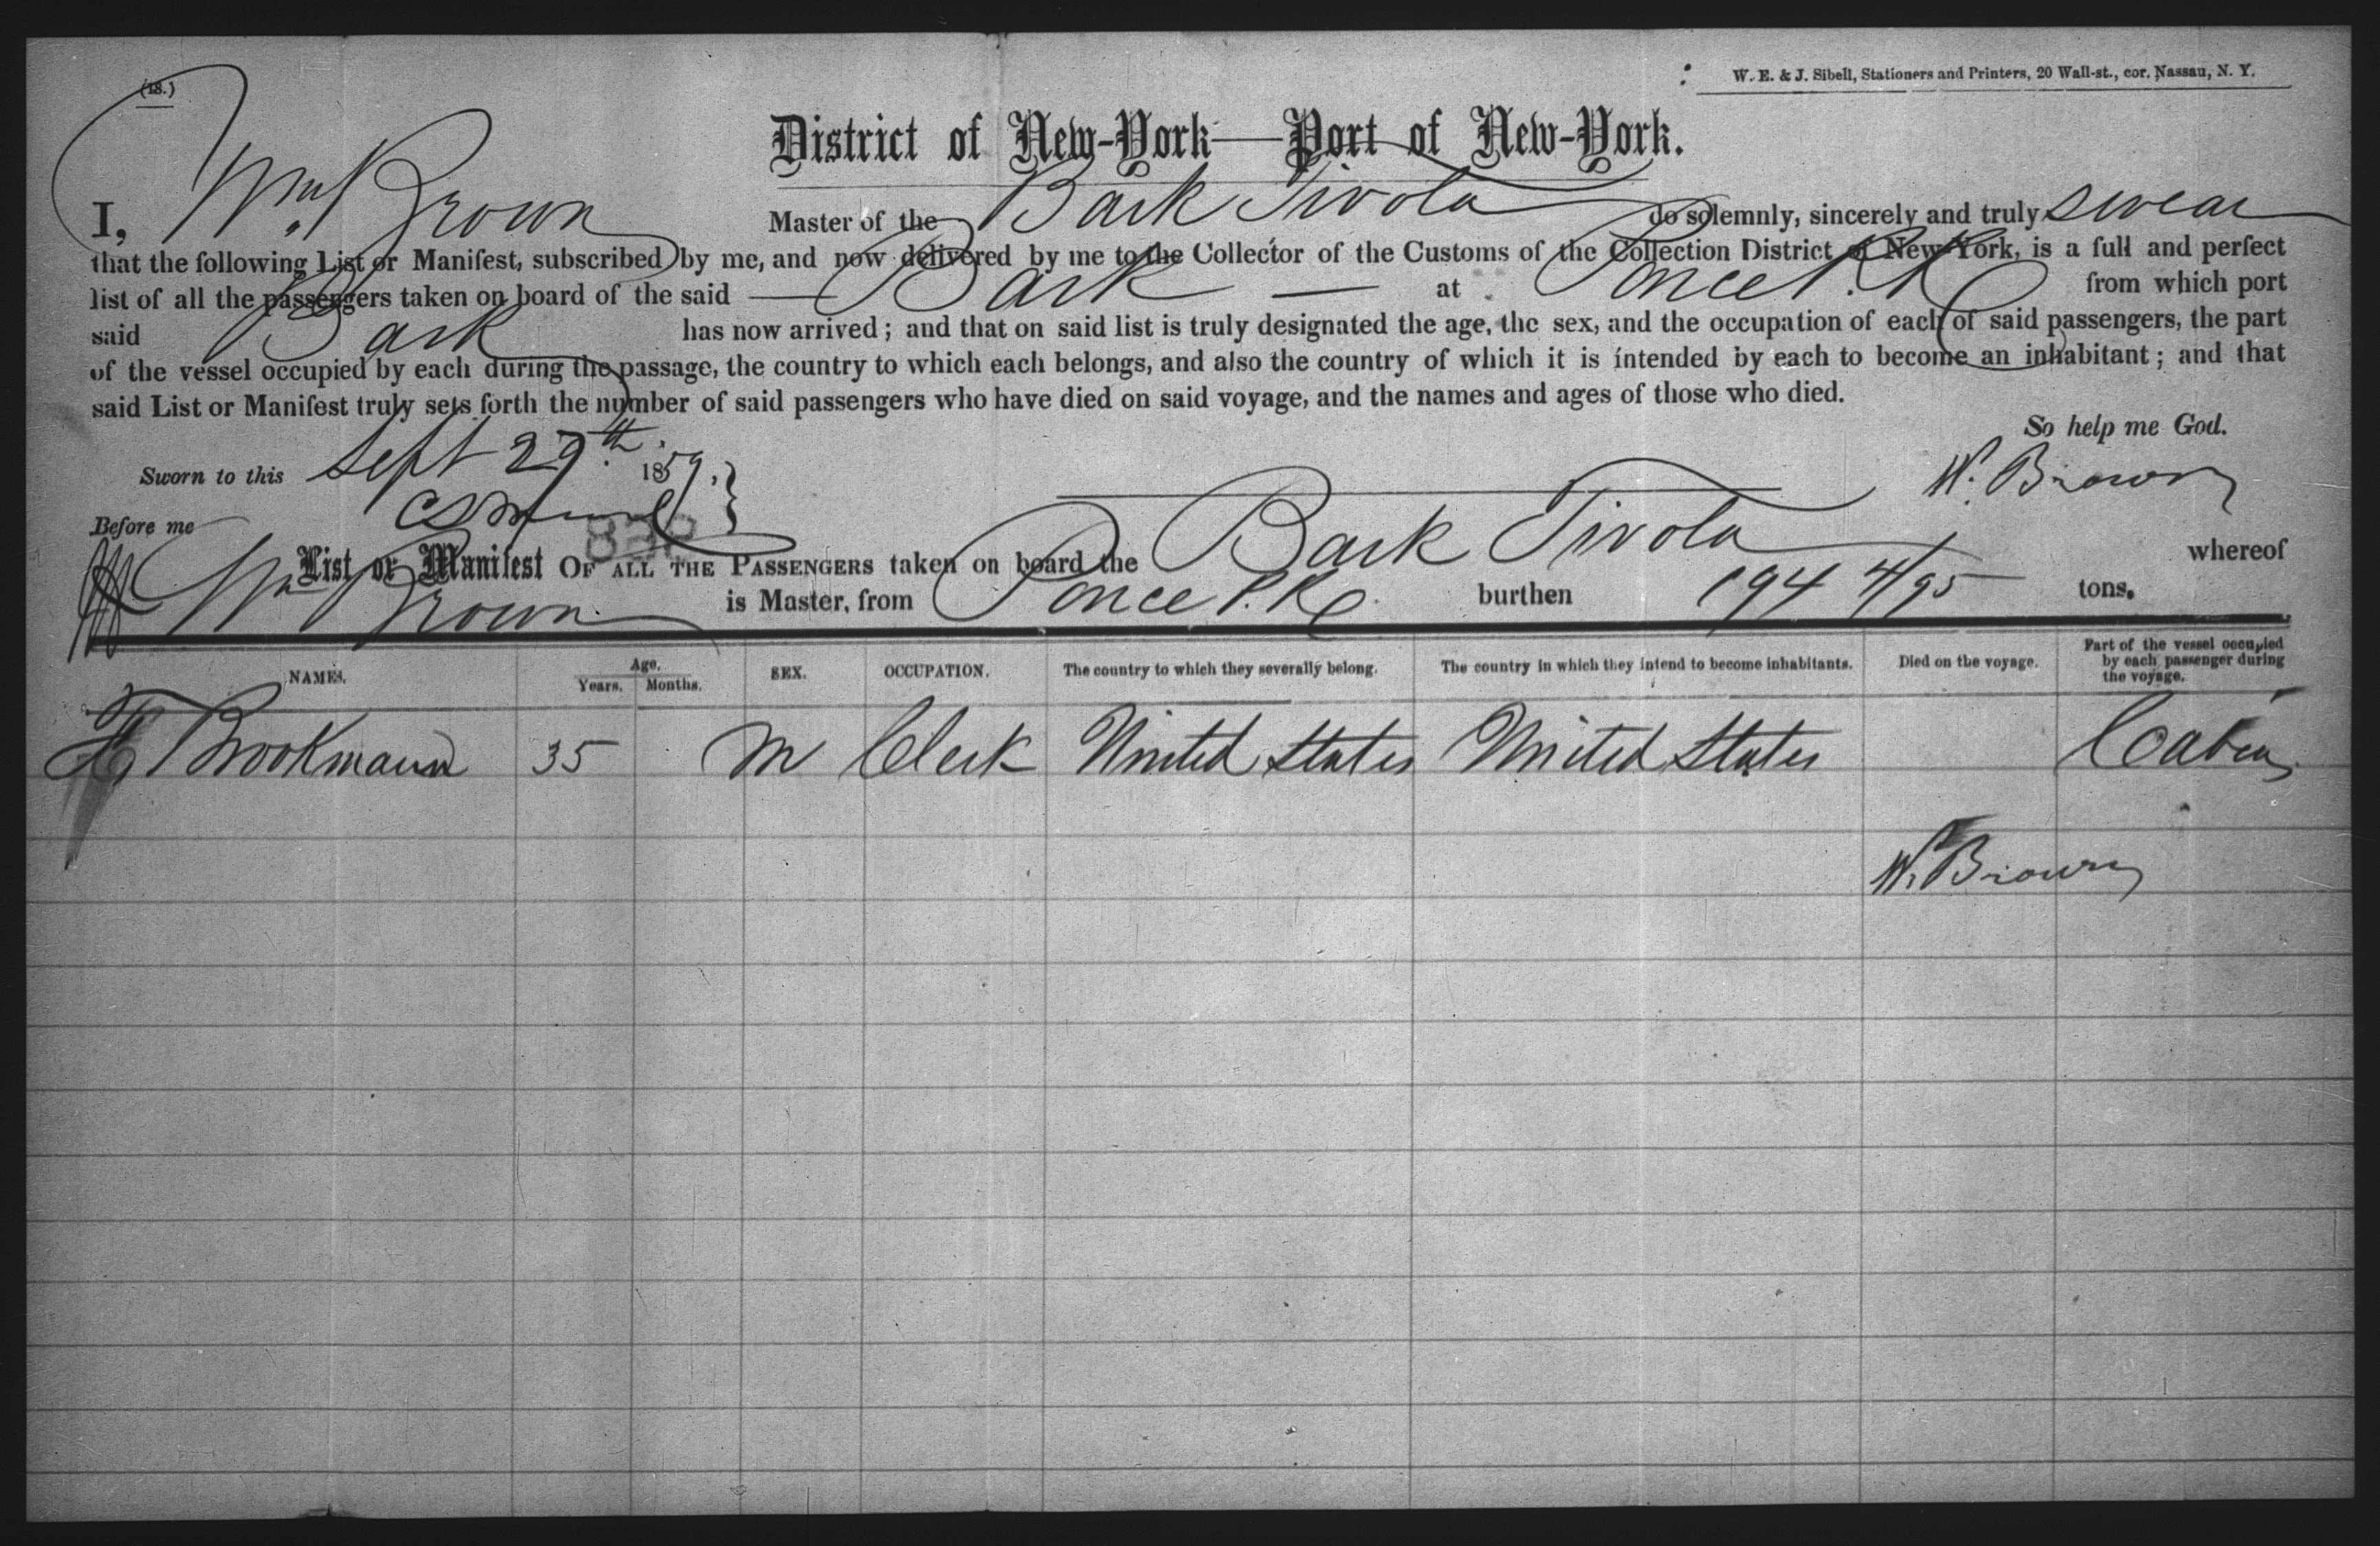 (18.)
W. E. & J. Sibell, Stationers and Printers, 20 Wall-st., cor. Nassau, N. Y.
District of New-York—Port of New-York.
I, Wm Brown Master of the Bark Tivola do solemnly, sincerely and truly swear
that the following List or Manifest, subscribed by me, and now delivered by me to the Collector of the Customs of the Collection District of New-York, is a full and perfect
list of all the passengers taken on board of the said — Bark — at Ponce P.R. from which port
said Bark has now arrived; and that on said list is truly designated the age, the sex, and the occupation of each of said passengers, the part
of the vessel occupied by each during the passage, the country to which each belongs, and also the country of which it is intended by each to become an inhabitant; and that
said List or Manifest truly sets forth the number of said passengers who have died on said voyage, and the names and ages of those who died.
So help me God.
Sworn to this Sept 29th 1859, W. Brown
Before me
List or Manifest OF ALL THE PASSENGERS taken on board the Bark Tivola whereof
Wm Brown is Master, from Ponce P.R. burthen 194 4/95 tons.
NAMES. Age. Years. Months. SEX. OCCUPATION. The country to which they severally belong. The country in which they intend to become inhabitants. Died on the voyage. Part of the vessel occupied by each passenger during the voyage.
Brookmann 35 M Clerk United States United States Cabin
W. Brown